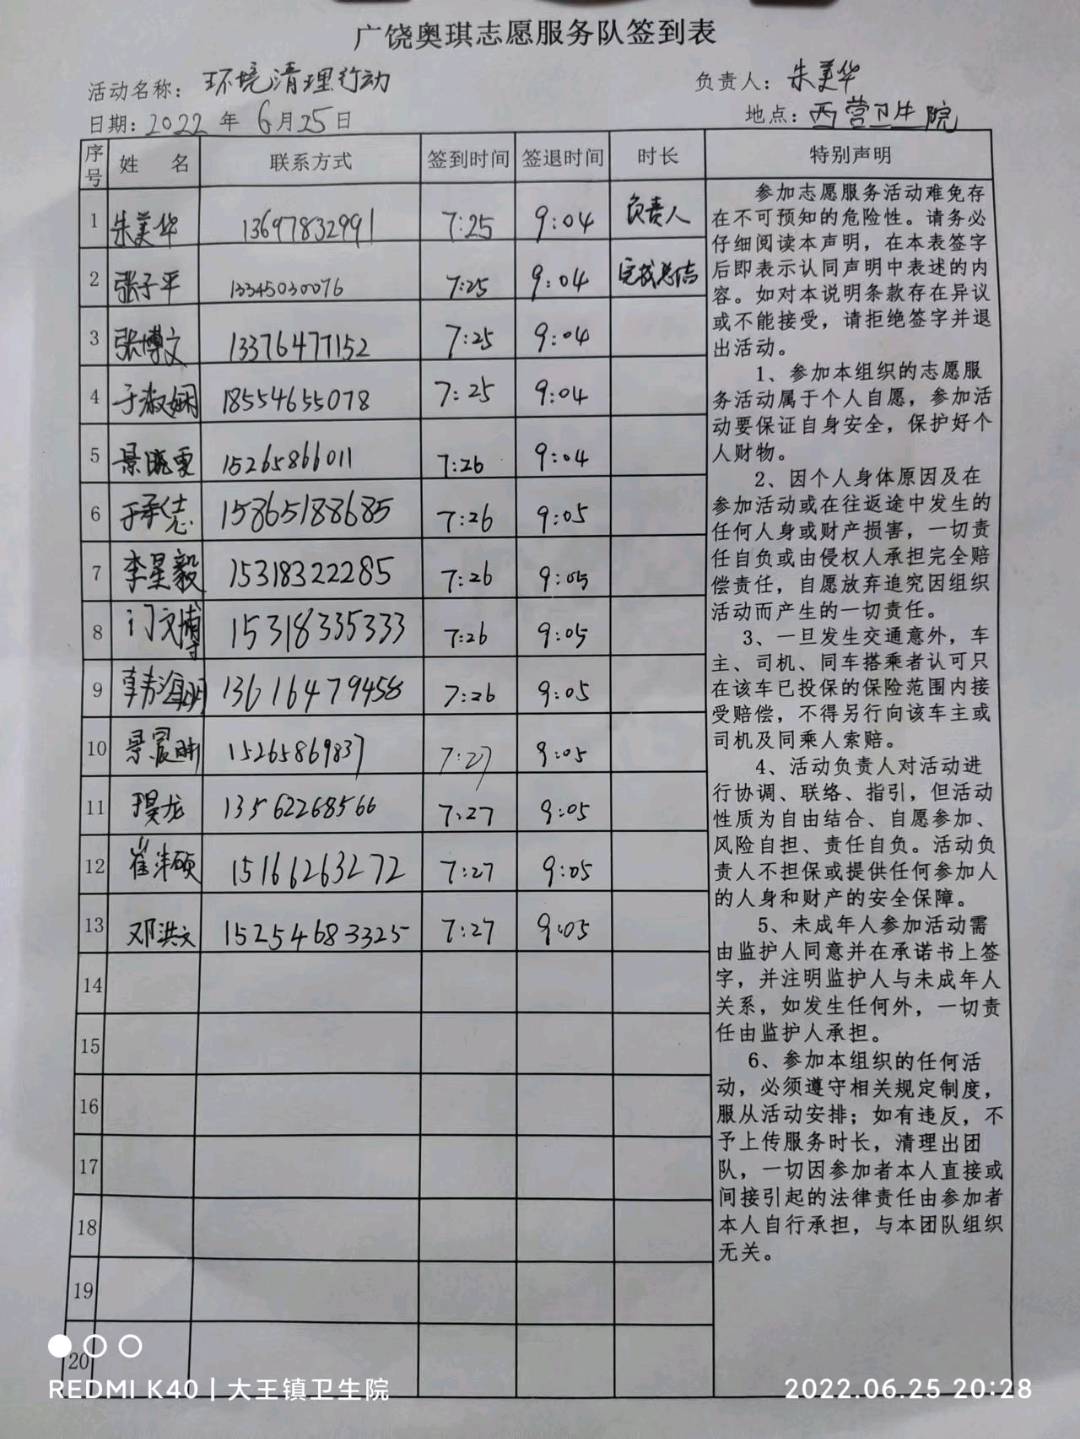 广饶奥琪志愿服务队签到表
活动名称：环境清理行动 负责人：朱美华
日期：2022年6月25日 地点：西营卫生院
序号 姓名 联系方式 签到时间 签退时间 时长 特别声明
1 朱美华 13697832991 7:25 9:04 负责人
2 张子平 13345030076 7:25 9:04
3 张博文 13376477152 7:25 9:04
4 于淑娴 18554655078 7:25 9:04
5 景晓雯 15265866011 7:26 9:04
6 于承志 15865188685 7:26 9:05
7 李星毅 15318322285 7:26 9:05
8 门文博 15318335333 7:26 9:05
9 13616479458 7:26 9:05
10 景宸 15265869837 7:27 9:05
11 龙 13562268566 7:27 9:05
12 崔沣硕 15166263272 7:27 9:05
13 邓洪文 15254683325 7:27 9:05
14
15
16
17
18
19
20
参加志愿服务活动难免存
在不可预知的危险性。请务必
仔细阅读本声明，在本表签字
后即表示认同声明中表述的内
容。如对本说明条款存在异议
或不能接受，请拒绝签字并退
出活动。
1、参加本组织的志愿服
务活动属于个人自愿，参加活
动要保证自身安全，保护好个
人财物。
2、因个人身体原因及在
参加活动或在往返途中发生的
任何人身或财产损害，一切责
任自负或由侵权人承担完全赔
偿责任，自愿放弃追究因组织
活动而产生的一切责任。
3、一旦发生交通意外，车
主、司机、同车搭乘者认可只
在该车已投保的保险范围内接
受赔偿，不得另行向该车主或
司机及同乘人索赔。
4、活动负责人对活动进
行协调、联络、指引，但活动
性质为自由结合、自愿参加、
风险自担、责任自负。活动负
责人不担保或提供任何参加人
的人身和财产的安全保障。
5、未成年人参加活动需
由监护人同意并在承诺书上签
字，并注明监护人与未成年人
关系，如发生任何外，一切责
任由监护人承担。
6、参加本组织的任何活
动，必须遵守相关规定制度，
服从活动安排；如有违反，不
予上传服务时长，清理出团
队，一切因参加者本人直接或
间接引起的法律责任由参加者
本人自行承担，与本团队组织
无关。
REDMI K40 | 大王镇卫生院
2022.06.25 20:28